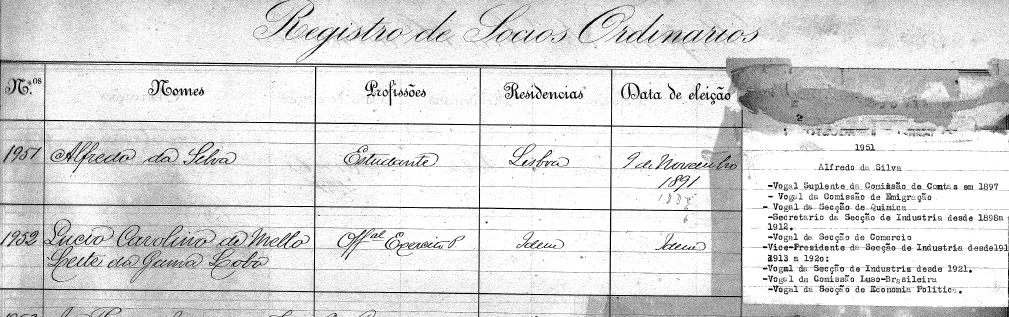 Registro de Socios Ordinarios
N.os Nomes Profissões Residencias Data de eleição
2
1951
1951 Alfredo da Silva Estudante Lisboa 9 de Novembro
1891
Alfredo da Silva
-Vogal Suplente da Comissão de Contas em 1897
- Vogal da Comissão de Emigração
- Vogal da Secção de Quimica
-Secretario da Secção de Industria desde 1898a
1912.
-Vogal da Secção de Comercio
-Vice-Presidente da Secção de Industria desde191
1913 a 1920:
-Vogal da Secção de Industria desde 1921.
-Vogal da Comissão Luso-Brasileira
-Vogal da Secção de Economia Politica.
1952 Lucio Carolino de Mello Off.al Exercito P Idem Idem
Leite da Gama Lobo